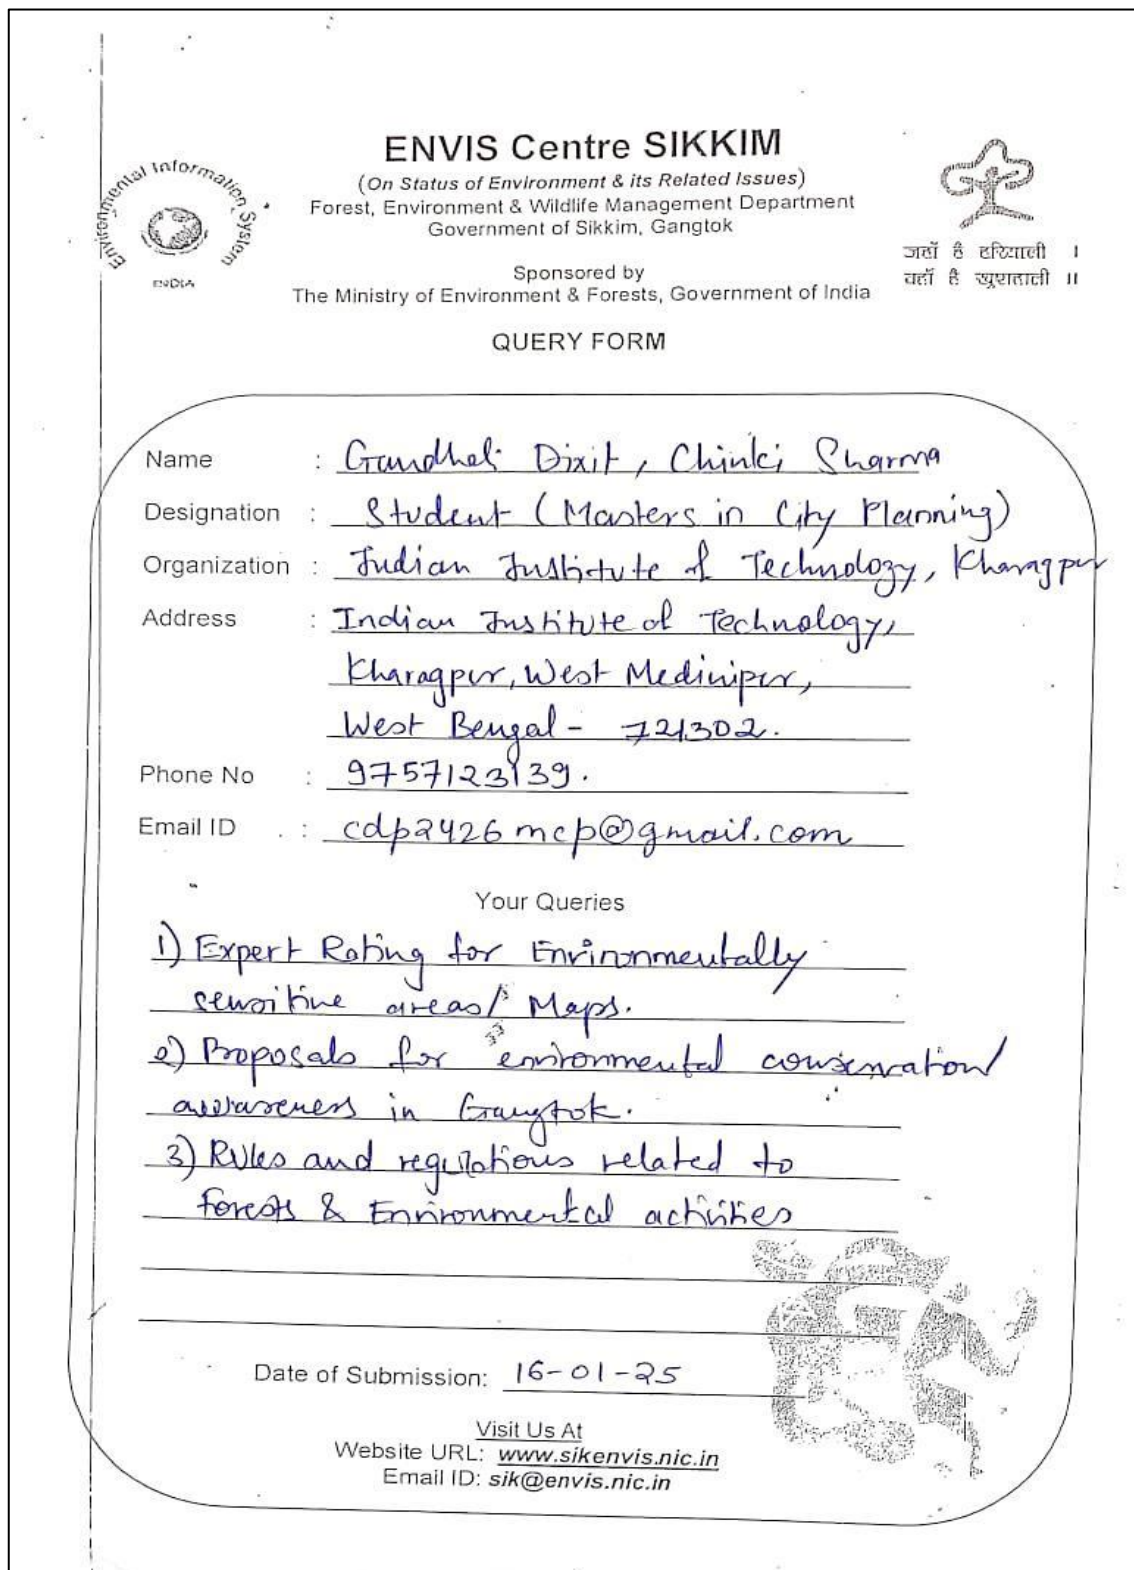 Environmental Information System
INDIA
ENVIS Centre SIKKIM
(On Status of Environment & its Related Issues)
Forest, Environment & Wildlife Management Department
Government of Sikkim, Gangtok
Sponsored by
The Ministry of Environment & Forests, Government of India
जहाँ है हरियाली ।
वहाँ है खुशहाली ॥
QUERY FORM
Name : Gandhali Dixit, Chinki Sharma
Designation : Student (Masters in City Planning)
Organization : Indian Institute of Technology, Kharagpur
Address : Indian Institute of Technology,
Kharagpur, West Medinipur,
West Bengal - 721302.
Phone No : 9757123139.
Email ID : cdp2426mcp@gmail.com
Your Queries
1) Expert Rating for Environmentally
sensitive areas/ Maps.
2) Proposals for environmental conservation
awareness in Gangtok.
3) Rules and regulations related to
forests & Environmental activities
Date of Submission: 16-01-25
Visit Us At
Website URL: www.sikenvis.nic.in
Email ID: sik@envis.nic.in